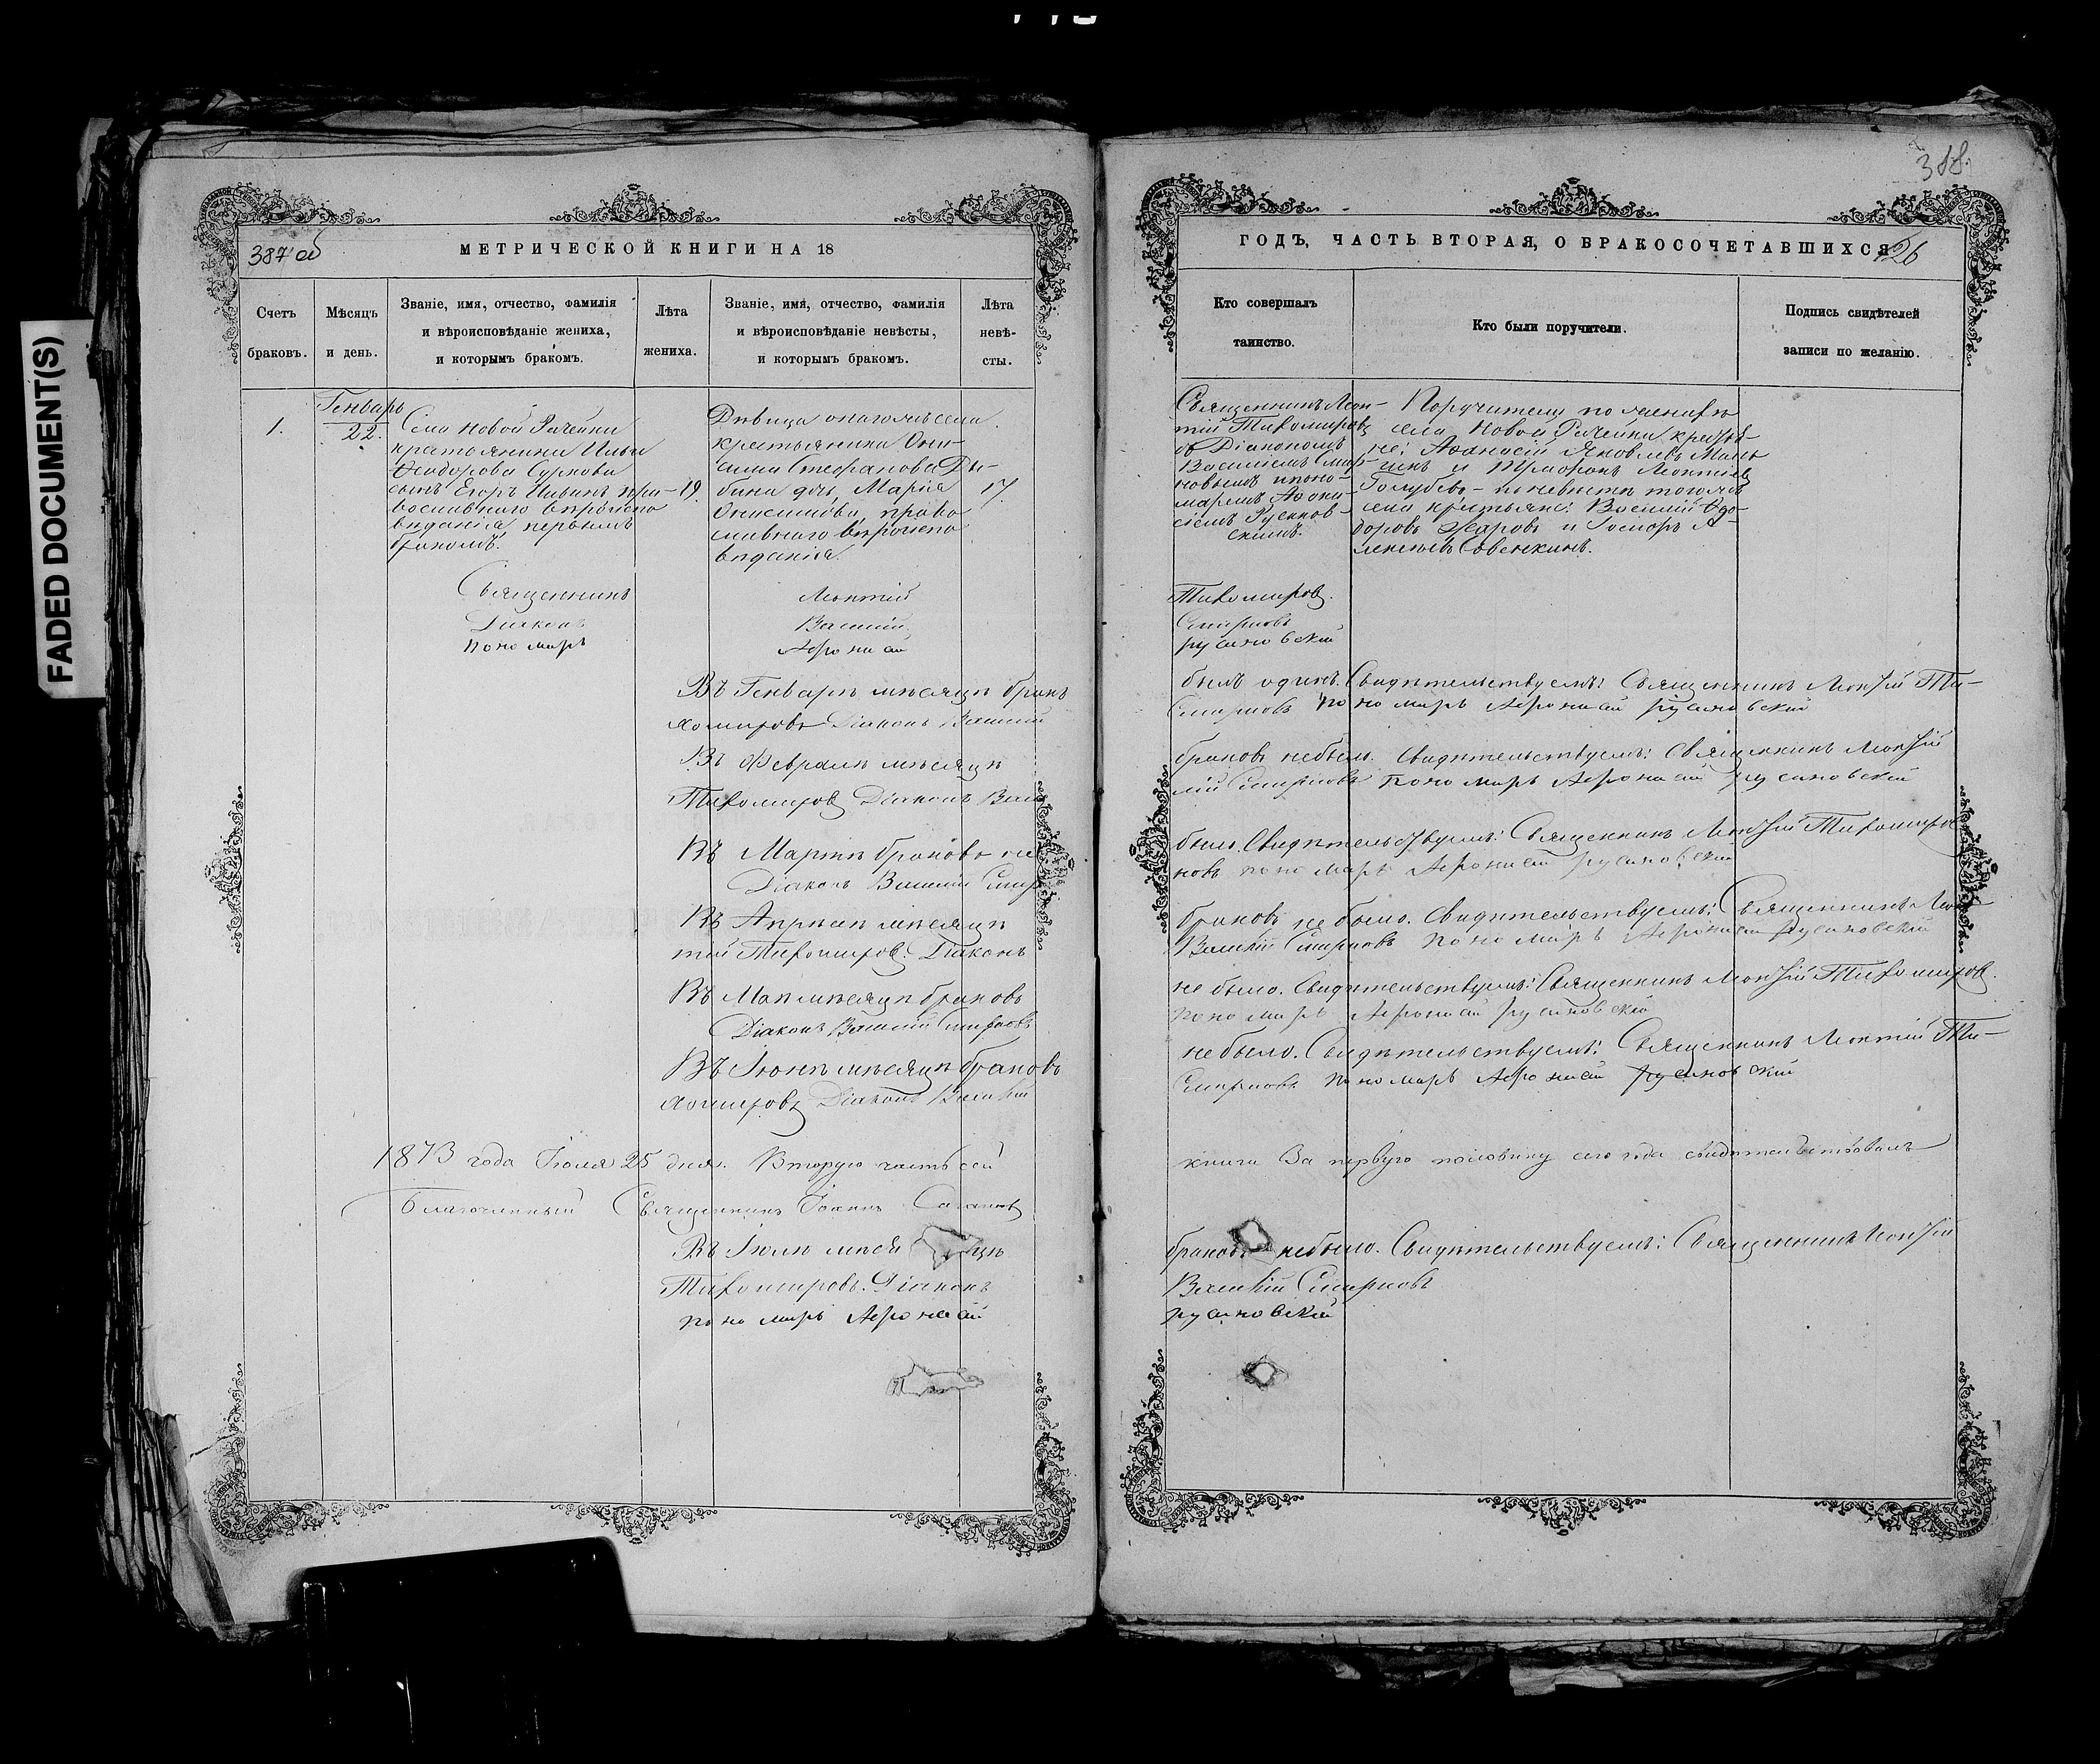 FADED DOCUMENT(S)
387 об
МЕТРИЧЕСКОЙ КНИГИ НА 18
Счетъ
браковъ.
Мѣсяцъ
и день.
Званіе, имя, отчество, фамилія
и вѣроисповѣданіе жениха,
и которымъ бракомъ.
Лѣта
жениха.
Званіе, имя, отчество, фамилія
и вѣроисповѣданіе невѣсты,
и которымъ бракомъ.
Лѣта
невѣ-
сты.
1.
Генварь
22.
Села Новой Рачейки
крестьянина Ильи
Ѳеодорова Суркова
сынъ Егоръ Ильинъ пра-
вославнаго вѣроиспо
вѣданія первымъ
бракомъ.
19.
Дѣвица онагожъ села
крестьянина Они-
сима Стефанова Ды-
бина дочь Марія
Онисимова, право
славнаго вѣроиспо
вѣданія.
17.
Священникъ Леонтій
Діаконъ Василій
пономарь Афонасій
Въ Генварѣ мѣсяцѣ бракъ
хомировъ Діаконъ Василій
Въ Февралѣ мѣсяцѣ
Тихомировъ Діаконъ Васи
Въ Мартѣ браковъ не
Діаконъ Василій Смир
Въ Апрѣлѣ мѣсяцѣ
тій Тихомировъ. Діаконъ
Въ Маѣ мѣсяцѣ браковъ
Діаконъ Василій Смирновъ
Въ Іюнѣ мѣсяцѣ браковъ
хомировъ Діаконъ Василій
1873 года Іюля 25 дня. Вторую часть сей
Благочинный Священникъ Іоаннъ
Въ Іюлѣ мѣсяцѣ
Тихомировъ. Діаконъ
пономарь Афонасій
388.
ГОДЪ, ЧАСТЬ ВТОРАЯ, О БРАКОСОЧЕТАВШИХСЯ
26
Кто совершалъ
таинство.
Кто были поручители.
Подпись свидѣтелей
записи по желанію.
Священникъ Леон-
тій Тихомировъ
съ Діакономъ
Василіемъ Смир-
новымъ и поно-
маремъ Афона-
сіемъ Русанов-
скимъ.
Поручители по женихѣ
села Новой Рачейки крестья-
не: Афанасій Яковлевъ
и Леонтіевъ
Голубевъ - по невѣстѣ тогожъ
села крестьяне: Василій Ѳео-
доровъ и А-
лексѣевъ Совенкинъ.
Тихомировъ.
Смирновъ
русановскій
былъ одинъ. Свидѣтельствуемъ: Священникъ Леонтій Ти-
Смирновъ пономарь Афонасій русановскій
браковъ небыло. Свидѣтельствуемъ: Священникъ Леонтій
лій Смирновъ пономарь Афонасій русановскій
было. Свидѣтельствуемъ: Священникъ Леонтій Тихомировъ
новъ пономарь Афонасій русановскій
браковъ не было. Свидѣтельствуемъ: Священникъ Леон
Василій Смирновъ пономарь Афонасій русановскій
не было. Свидѣтельствуемъ: Священникъ Леонтій Тихомировъ.
пономарь Афонасій русановскій
не было. Свидѣтельствуемъ: Священникъ Леонтій Ти-
Смирновъ пономарь Афонасій русановскій
книги За первую половину сего года свидѣтельствовалъ
браковъ небыло. Свидѣтельствуемъ: Священникъ Леонтій
Василій Смирновъ
русановскій